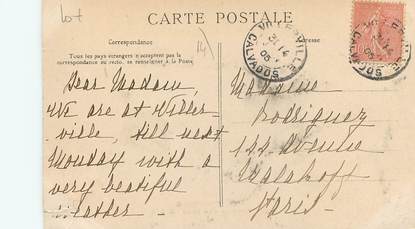 lot
CARTE POSTALE
Correspondance
Tous les pays étrangers n'acceptent pas la
correspondance au recto, se renseigner à la Poste
Dear Madam,
We are at Viller-
ville, till next
Monday with a
very beatiful
weather.
Adresse
Madame
Rodriguez
122 Avenue
Malakoff
Paris.
VILLERVILLE
CALVADOS
CALVADOS